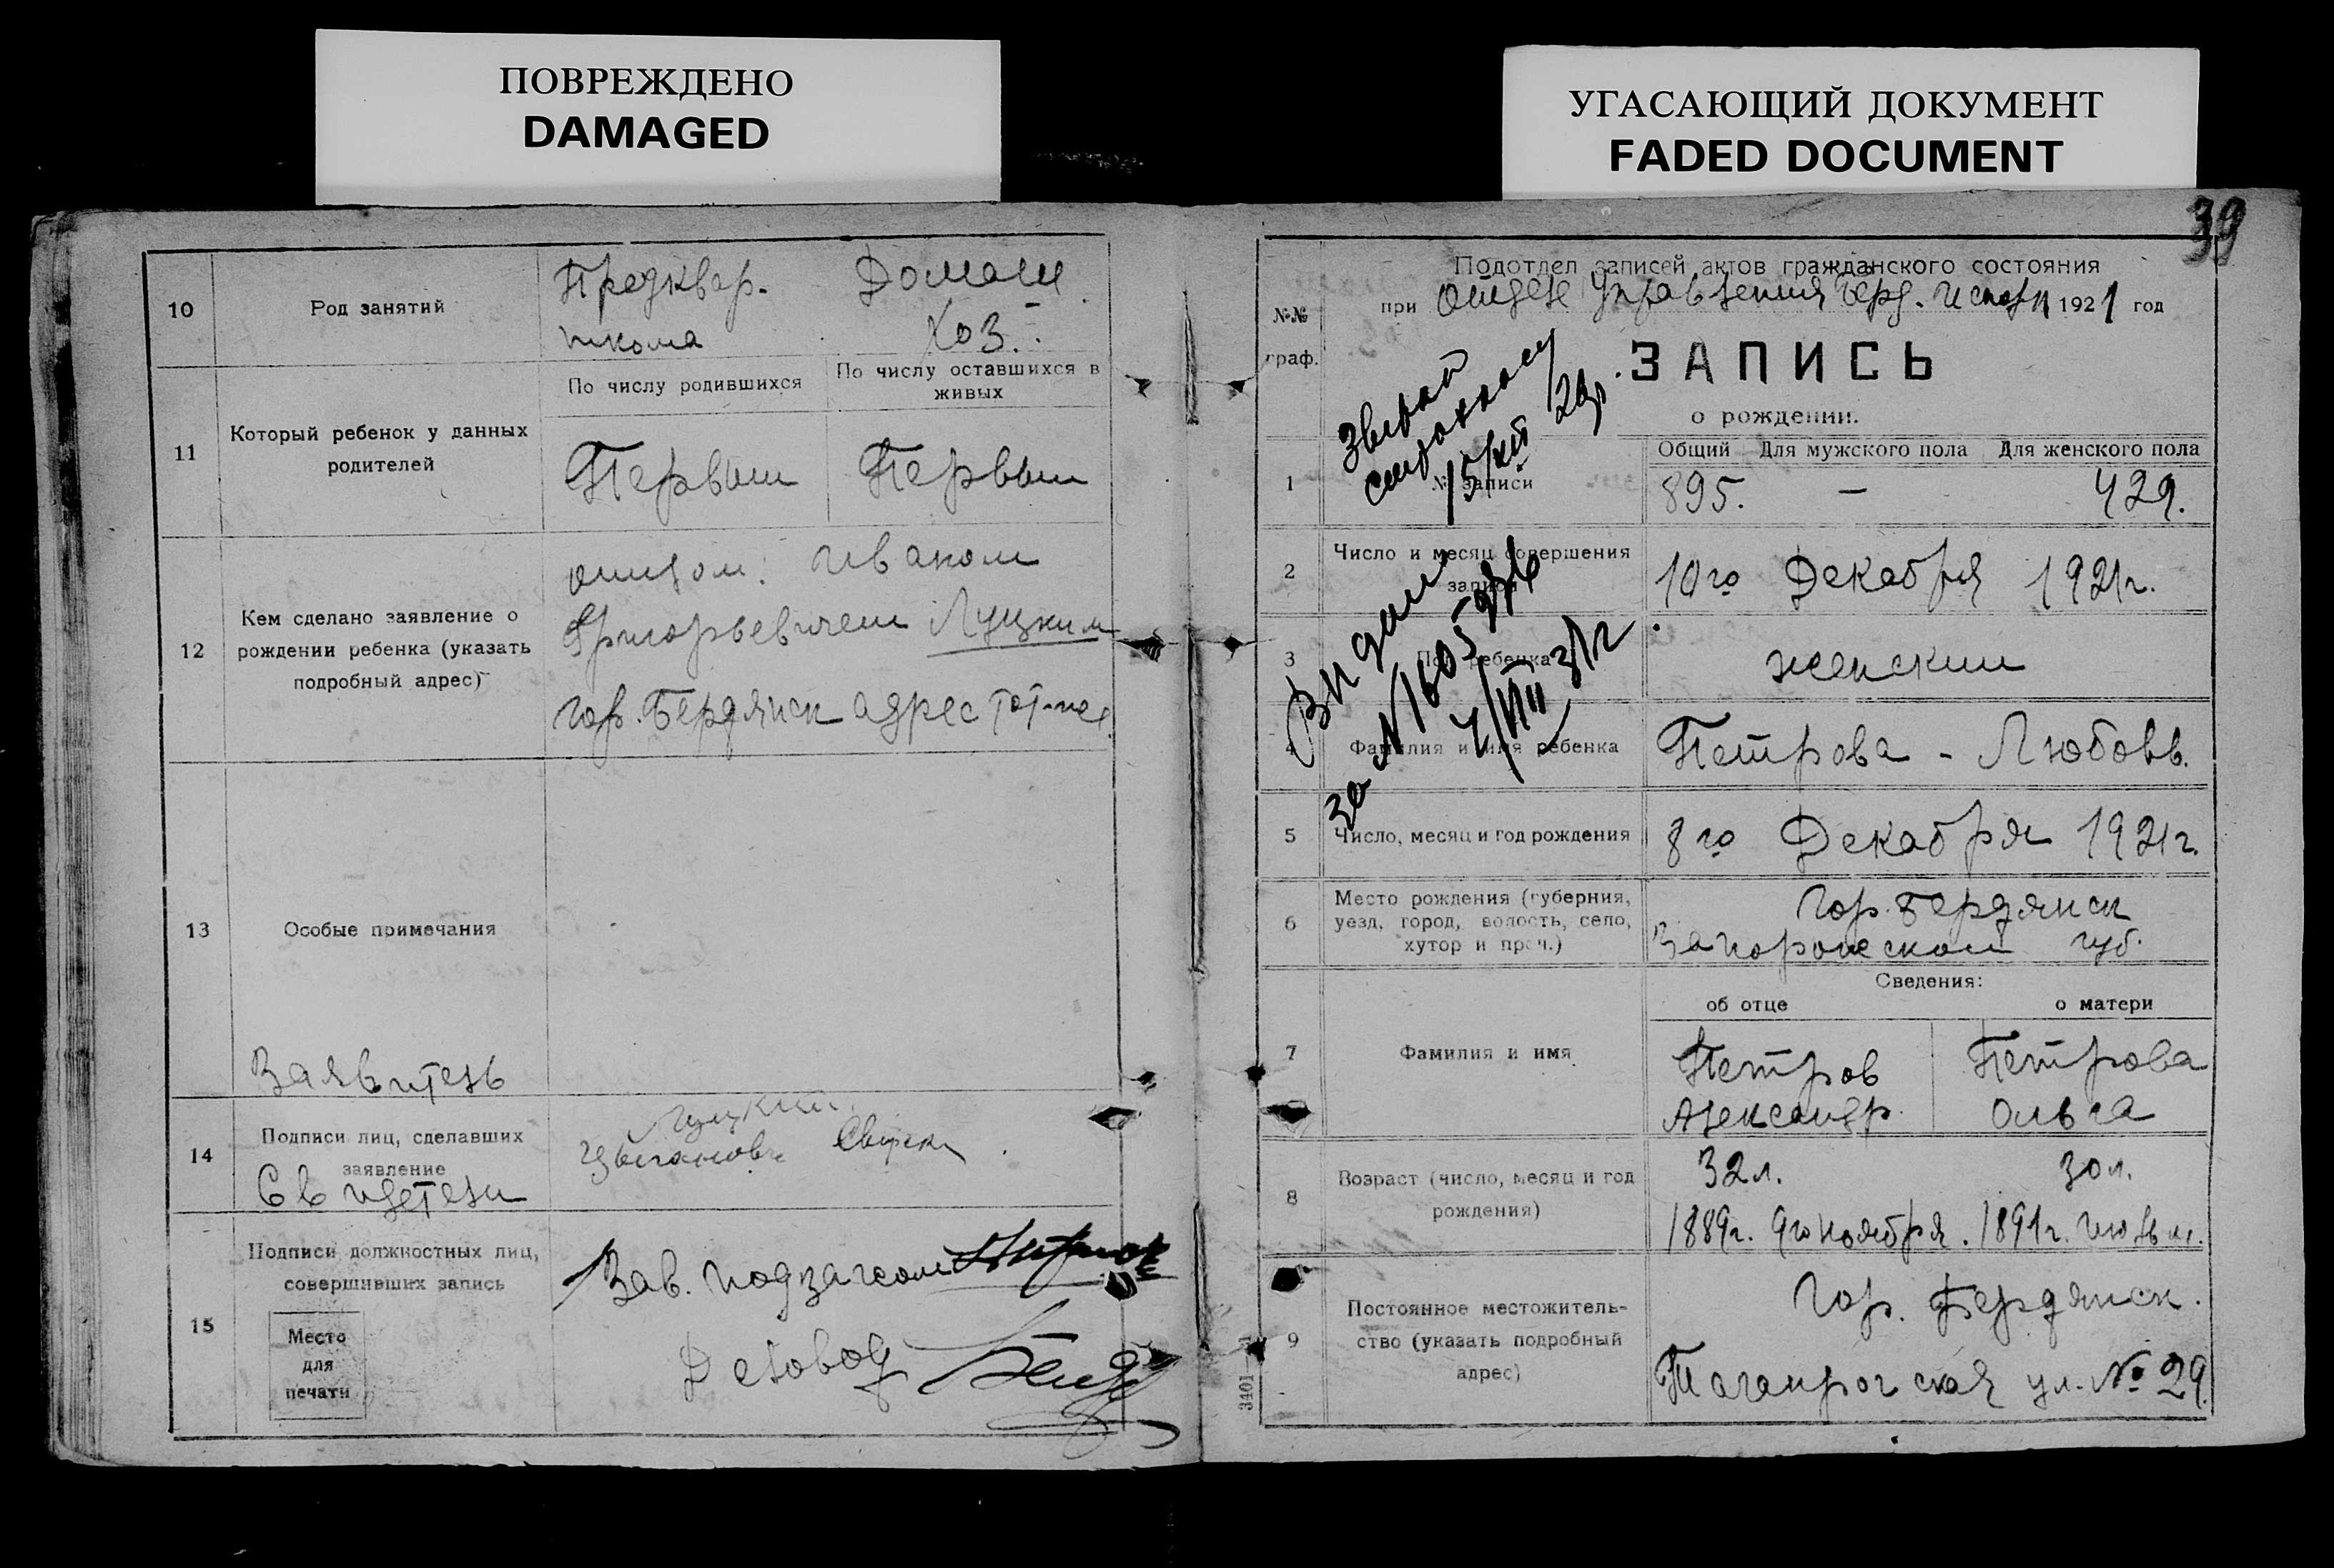 ПОВРЕЖДЕНО
DAMAGED
УГАСАЮЩИЙ ДОКУМЕНТ
FADED DOCUMENT
10
Род занятий
Предквар.
школа
Домаш.
Хоз.
11
Который ребенок у данных
родителей
По числу родившихся
По числу оставшихся в
живых
Первый
Первый
12
Кем сделано заявление о
рождении ребенка (указать
подробный адрес)
отцом: Иваном
Григорьевичем Луцким
гор. Бердянск адрес тот-же.
13
Особые примечания
Заявитель
14
Подписи лиц, сделавших
заявление
Свидетели
Луцкий
15
Подписи должностных лиц,
совершивших запись
Место
для
печати
Зав. подзагсом
Деловод
39
№№
граф.
Подотдел записей актов гражданского состояния
при Отделе Управления Берд. 1921 год
ЗАПИСЬ
о рождении.
15/XII 29
Общий Для мужского пола Для женского пола
1
№ записи
895. — 429.
2
Число и месяц совершения
записи
10го Декабря 1921г.
3
Пол ребенка
женский
за №1605
4/VIII 31г
4
Фамилия и имя ребенка
Петрова - Любовь.
5
Число, месяц и год рождения
8го Декабря 1921г.
6
Место рождения (губерния,
уезд, город, волость, село,
хутор и проч.)
Гор. Бердянск
Запорожской губ.
Сведения:
об отце о матери
7
Фамилия и имя
Петров
Александр.
Петрова
Ольга
8
Возраст (число, месяц и год
рождения)
32л. 30л.
1889г. 9го ноября. 1891г. Июль м.
9
Постоянное местожитель-
ство (указать подробный
адрес)
Гор. Бердянск.
Таганрогская ул. № 29.
3401